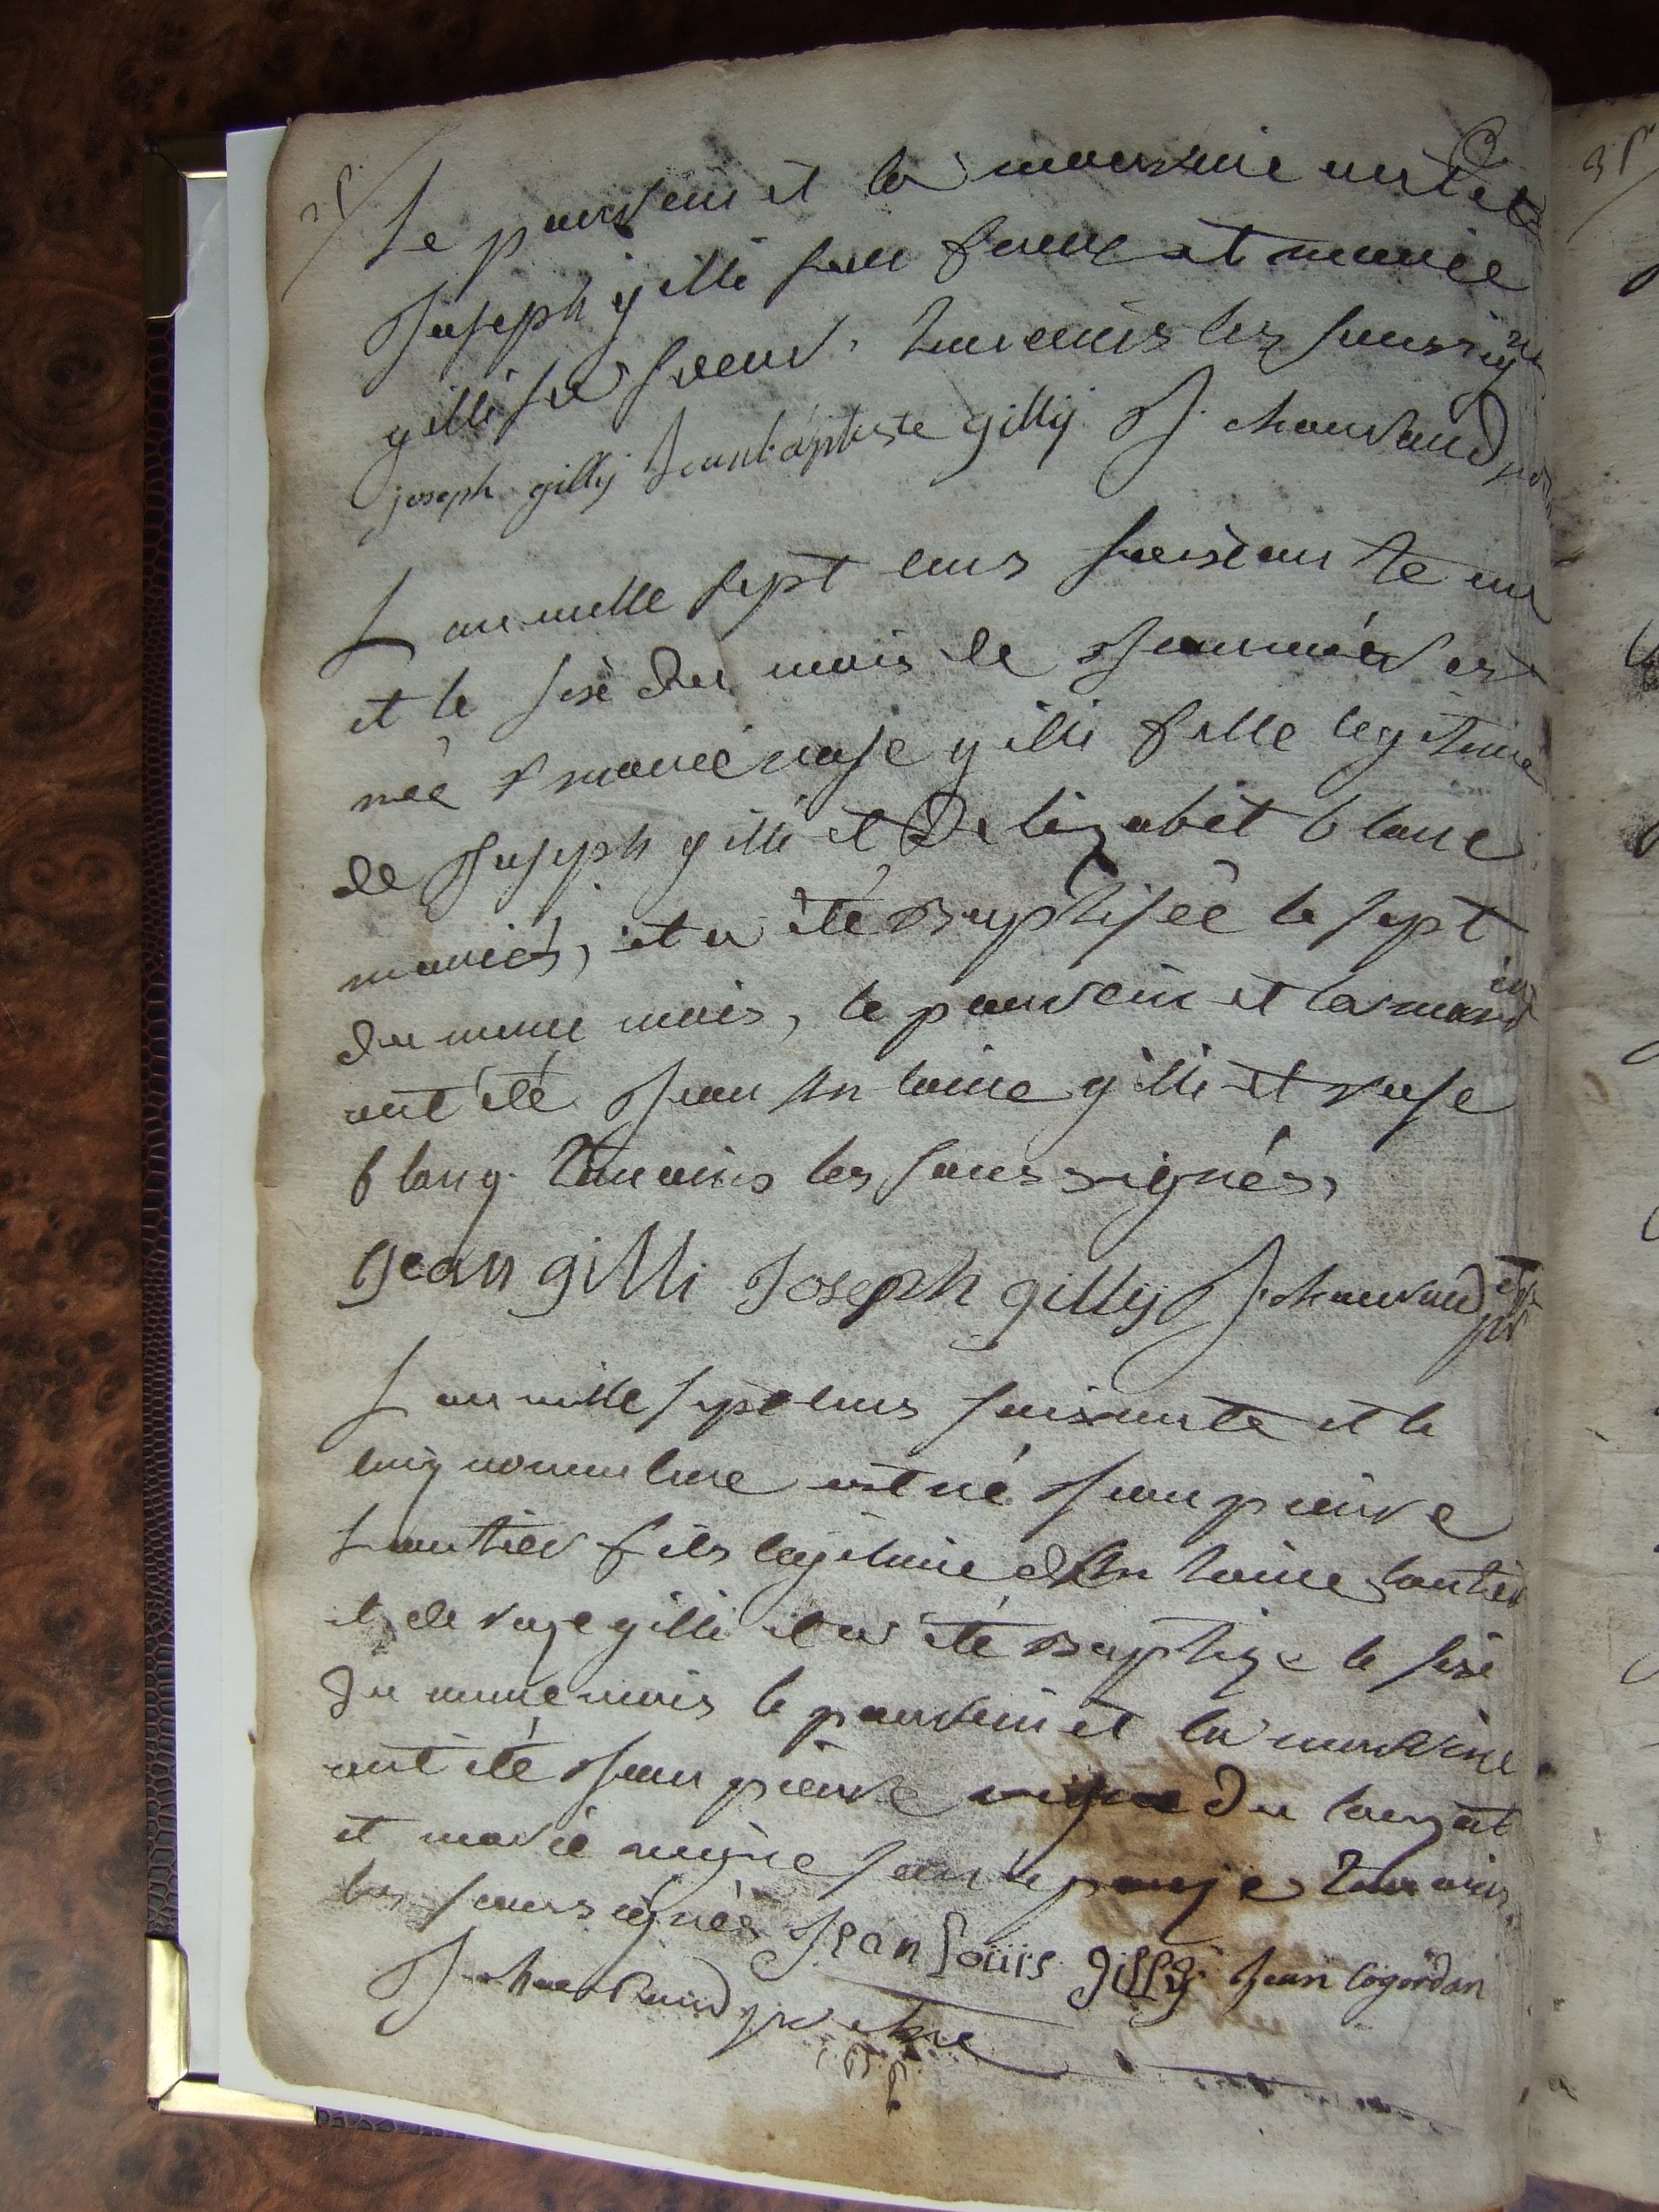 Le parrein et la marrine ont été
Joseph gilli son frere et marie
gilli sa soeur, temoins les soussignés
joseph gillij Jeanbaptiste gillij J. chauvand
L an mille sept cens soisante un
et le sixe du mois de Janvier est
née marie rose gilli fille legitime
de Joseph gilli et De lizabet blanc
mariés, et a été Baptisée le sept
du meme mois, le parrein et la marrine
ont été Jean Antoine gilli et rose
blanq. Temoins les sous signés,
Jean gilli Joseph gillij J. chauvand ptr
L an mille sept cens soisante et le
cinq novembre est né Jean pierre
Lantier fils legitime d'Antoine Lantier
et de roze gilli et a été Baptize le sixe
du meme mois le parrein et la marrine
ont été Jean pierre du
et marie son epouse Temoins
les soussignés Jean Louis gilly Jean cogordan
J. chauvand pretre